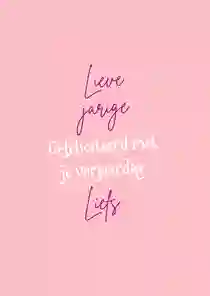 Lieve
jarige
Gefeliciteerd met
je verjaardag
Liefs